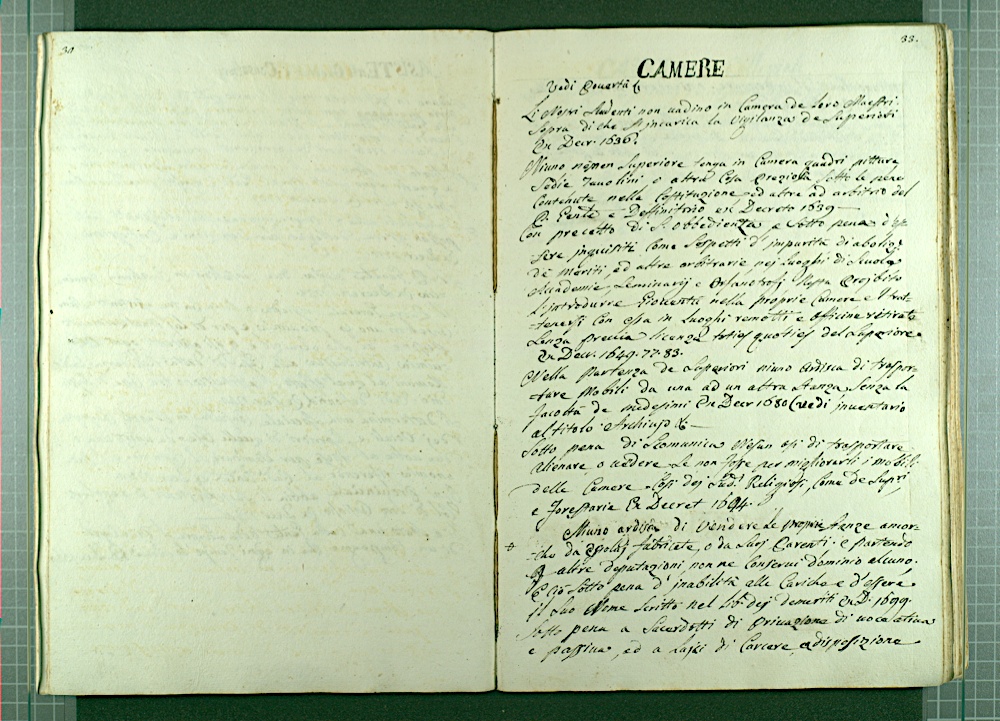 30
33.
CAMERE
Vedi Povertà
Li Nostri Studenti non uadino in Camera de Loro Maestri.
sopra di che s'incarica la Vigilanza de Superiori
Ex Decr. 1636.
Niuno Superiore tenga in Camera quadri pitture
Sedie Tauolini o altra Cosa preziosa sotto le pene
Contenute nella Costituzione ed altre ad arbitrio del
P. Gente e Deffinitorio ex Decreto 1639
Con precetto di S. Obbedienza e sotto pena d'es-
sere inquisiti come sospetti d'impurità di
de Meriti, ed altre arbitrarie, nei luoghi di Scuola
Accademie, Seminarij e Orfanotrofi Resta Proibito
L'introdurre Giouentù nelle proprie Camere e Trat-
tenersi con essa in Luoghi remotti e Officine ritirate
senza previa licenza toties quoties del Superiore
Ex Decr. 1649. 77. 83.
Nella partenza de Superiori niuno Ardisca di traspor-
tare Mobili da una ad un altra stanza senza la
facoltà de medesimi Ex Decr 1680 (vedi inventario
al titolo Archiuio
Sotto pena di Scomunica Nesun osi di trasportare
Alienare o uedere se non fosse per migliorarli i mobili
delle Camere Così dei Religiosi, come de Supri,
e foresterie Ex Decret 1694.
Niuno ardisca di Vendere le proprie stanze amor-
che da fabricate, o da suoi Parenti e partendo
altre deputazioni non ne Conserui dominio alcuno.
e ciò sotto pena d'inabilità alle Cariche e d'essere
il suo Nome scritto nel lib. dei demeriti Ex D. 1699.
sotto pena a Sacerdotti di Priuazione di uoce atiua
e passiua, ed a Laici di Carcere a disposizione